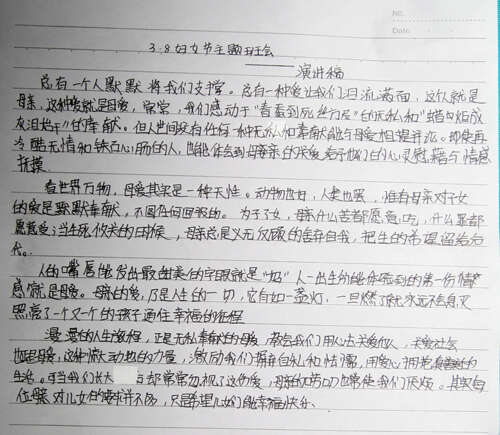 No.
Date
3.8妇女节主题班会
演讲稿
总有一个人默默将我们支撑。总有一种爱让我们泪流满面,这个人就是
母亲,这种爱就是母爱,常常,我们感动于"春蚕到死丝方尽"的无私和"蜡炬
灰泪始干"的奉献。但人世间没有任何一种无私和奉献能与母爱相提并论。即使再
冷酷无情和铁石心肠的人,也能体会到母亲的关爱给予他们的心灵慰藉与情感
抚摸
看世界万物,母爱其实是一种天性。动物也好,人类也罢,惟有母亲对子女
的爱是默默奉献,不图任何回报的。为了子女,母亲什么苦都愿意吃,什么罪都
愿意受;当生死攸关的时候,母亲总是义无反顾的舍弃自我,把生的希望留给后
代。
人的嘴唇能发出最甜美的字眼就是"妈"人一出生就能体验到的第一份情
感就是母爱。母亲的爱,乃是人生的一切,它有如一盏灯,一旦燃了就永远不会熄灭
照亮了一个又一个的孩子通往幸福的征程
漫漫的人生旅程,正是无私奉献的母爱,带给我们用心去关爱他人,关爱社会
也是母爱,这种惊天动地的力量,激励我们摒弃自私和怯懦,用爱心拥抱
生活。可当我们长大 却常常忽视了这份爱,母亲的唠叨也常使我们厌烦。其实每
位母亲对儿女的要求并不多,只是希望儿女们能幸福快乐、